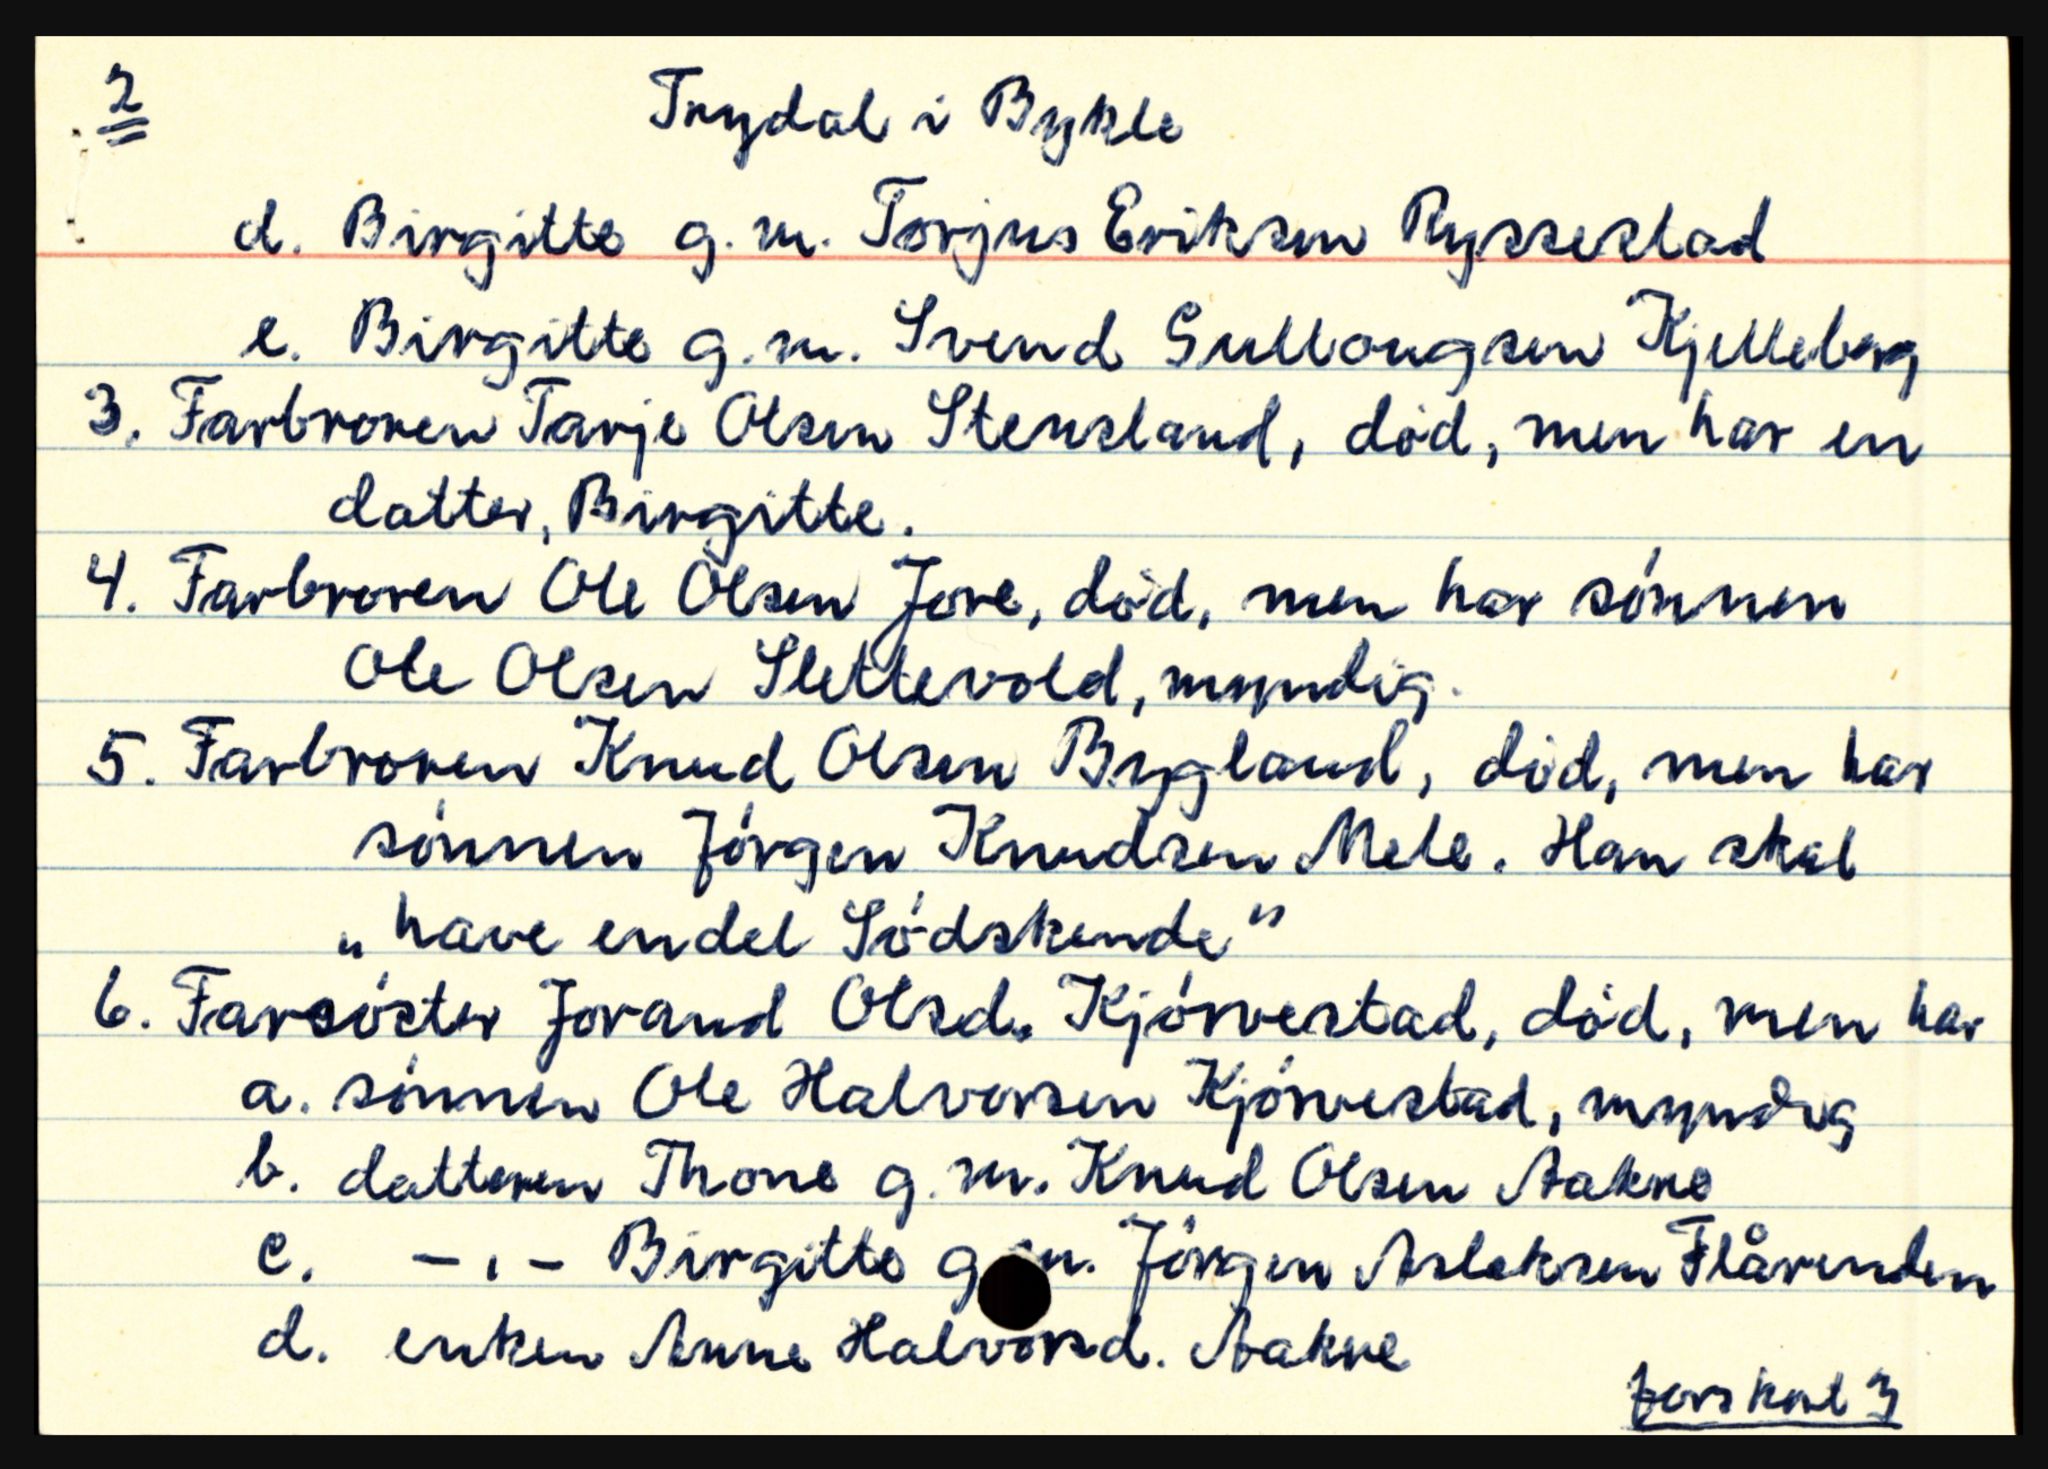 2
Trydal i Bykle
d. Birgitte g.m. Torjus Eriksen Ryssestad
e. Birgitte g.m. Svend Gullougsen Kjelleberg
3. Farbroren Tarje Olsen Stensland, død, men har en
datter, Birgitte.
4. Farbroren Ole Olsen Jore, død, men har sønnen
Ole Olsen Slettevold, myndig.
5. Farbroren Knud Olsen Bygland, død, men har
sønnen Jørgen Knudsen Mele. Han skal
„have endel Södskende"
6. Farsøster Jorand Olsd. Kjørvestad, død, men har
a. sønnen Ole Halvorsen Kjørvestad, myndig
b. datteren Thone g.m. Knud Olsen Aakre
c. -,- Birgitte g.m. Jörgen Asleksen Flårenden
d. enken Anne Halvorsd. Aakre
fors kort 3